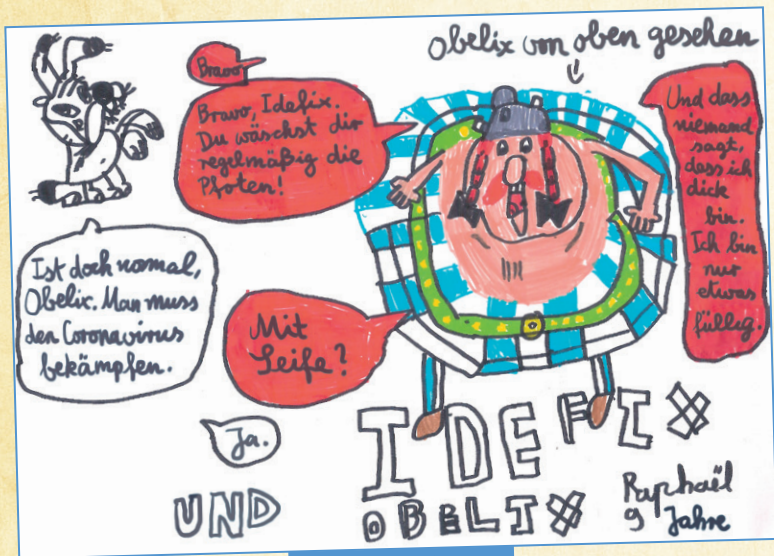 Obelix von oben gesehen
Bravo
Bravo, Idefix.
Du wäschst dir
regelmäßig die
Pfoten!
Und dass
niemand
sagt,
dass ich
dick
bin.
Ich bin
nur
etwas
füllig.
Ist doch normal,
Obelix. Man muss
den Coronavirus
bekämpfen.
Mit
Seife?
Ja.
IDEFIX
UND
OBELIX
Raphaël
9 Jahre